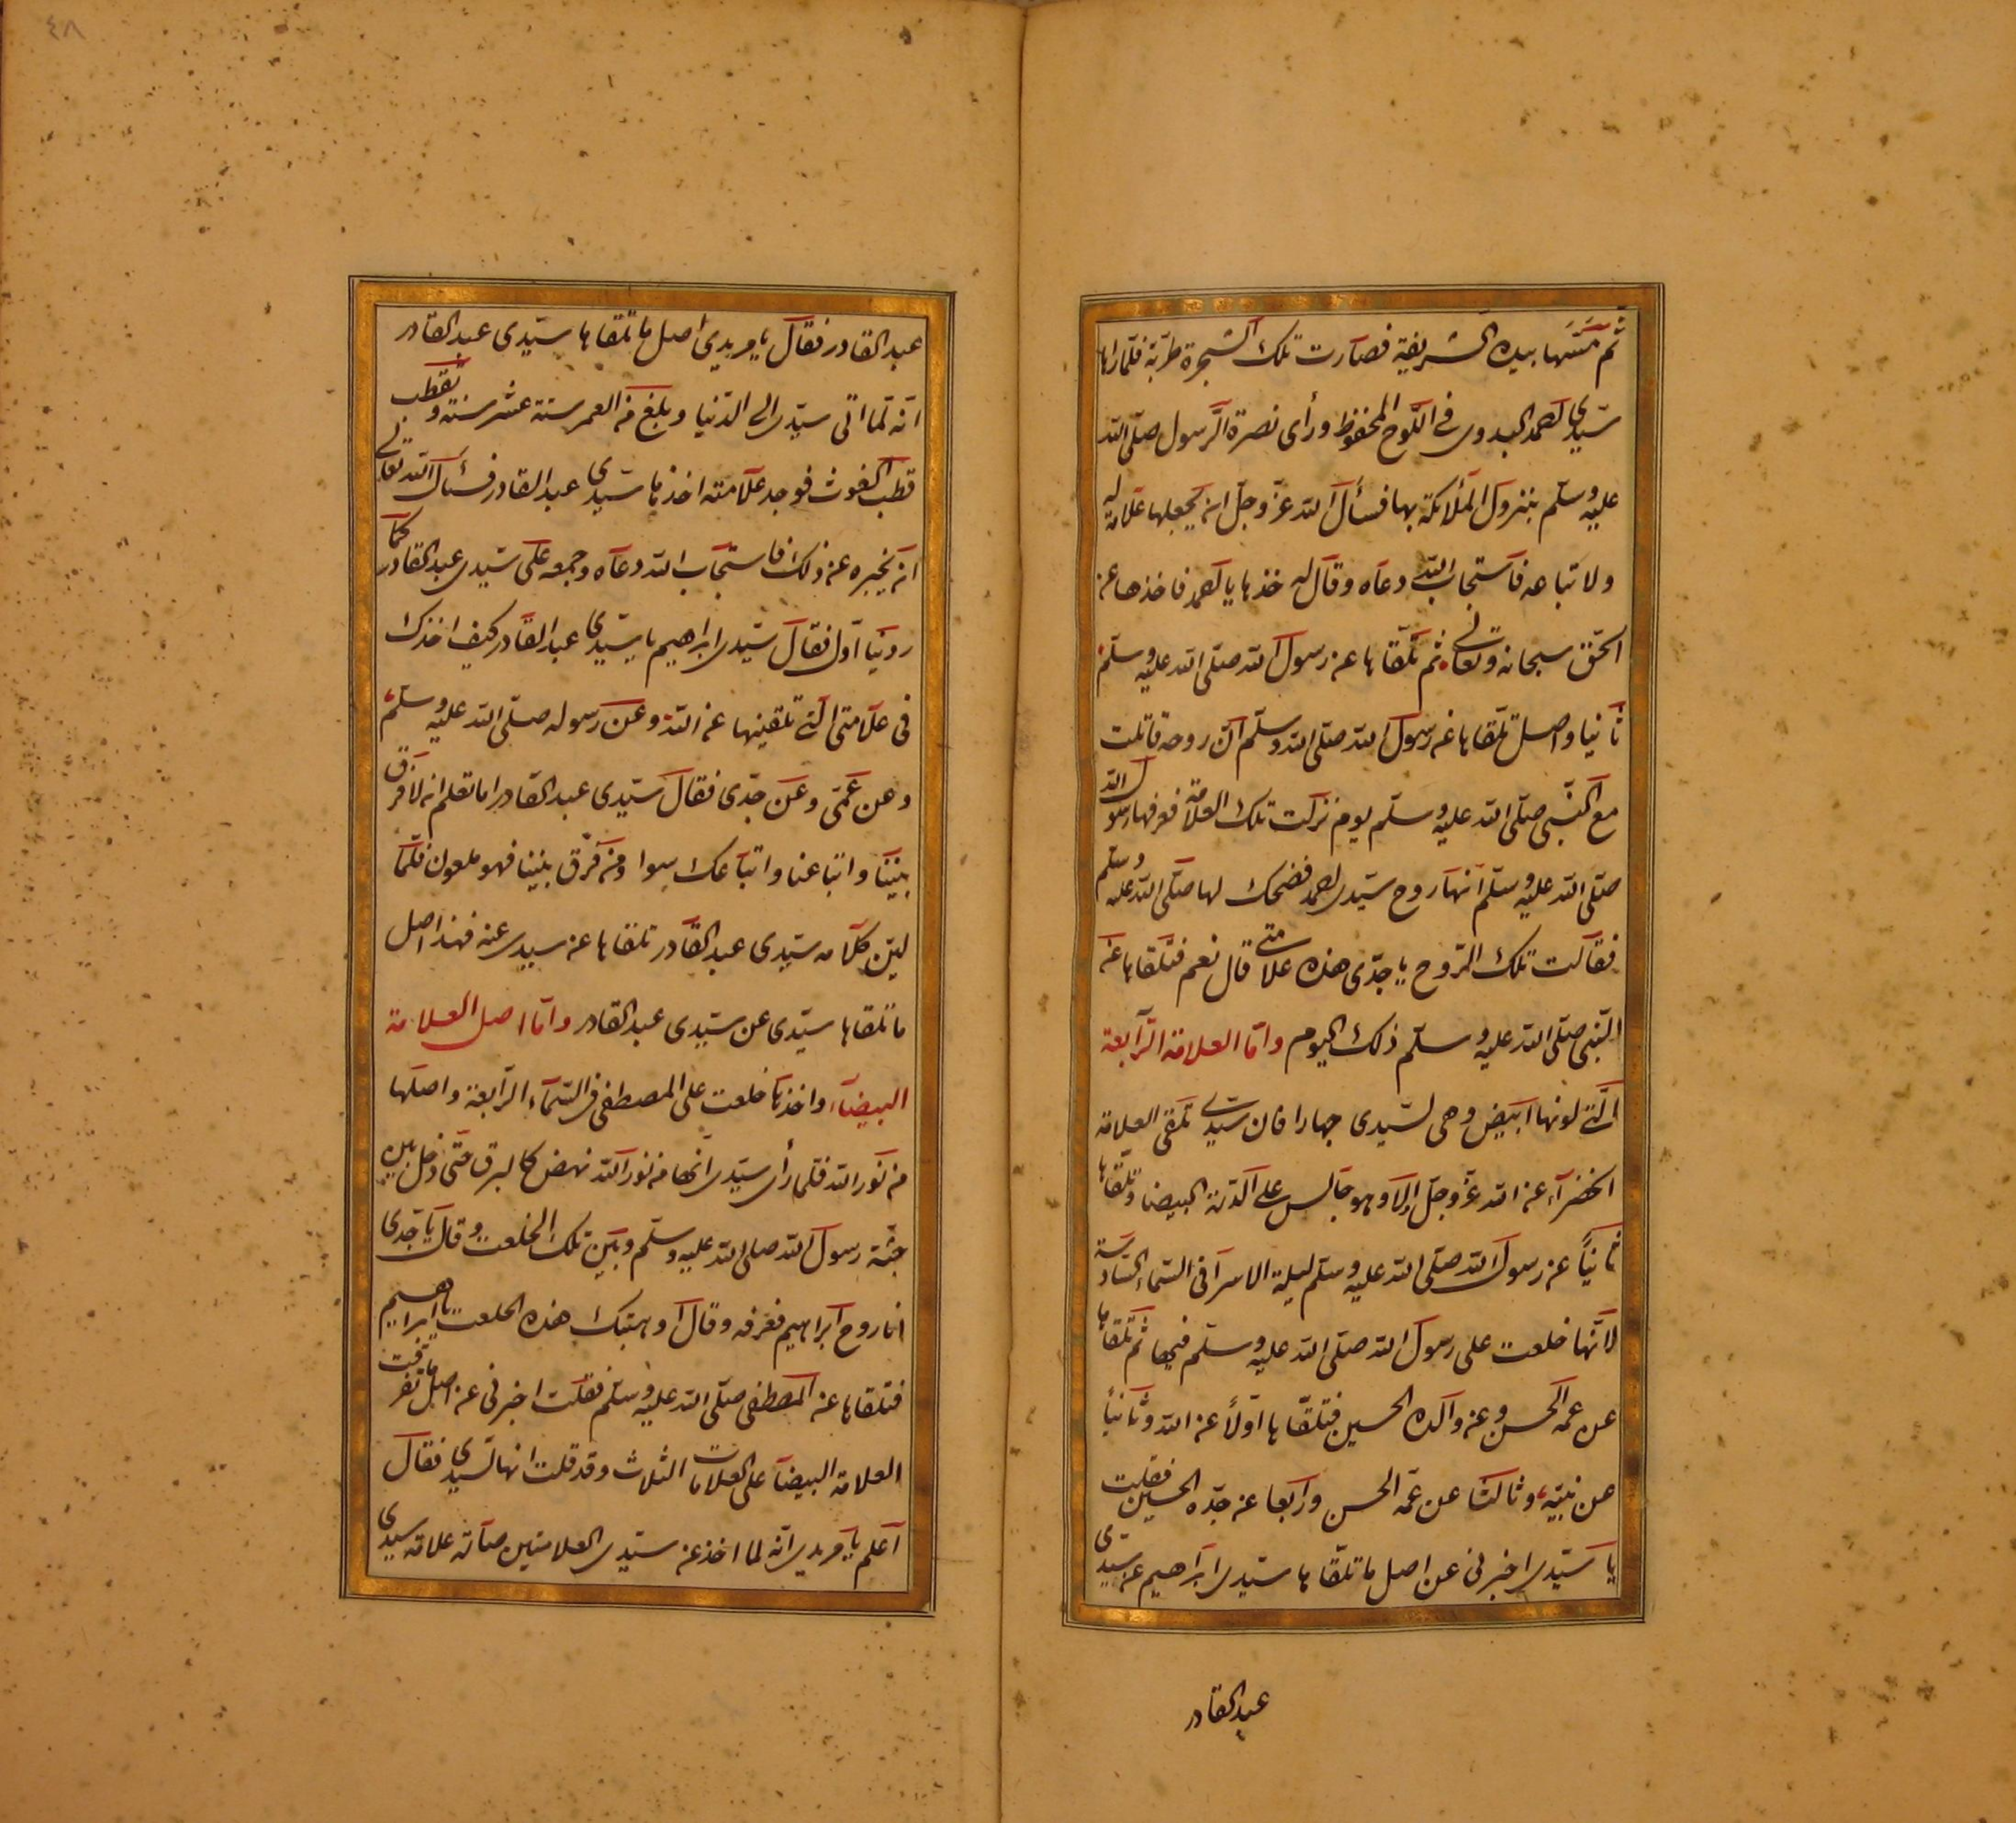 ثم مسّها بيده الشريفة فصارت تلك الشجرة طريّة فلمّا راها
سيّدي احمد البدوى في اللّوح المحفوظ ورأى نصرة الرّسول صلّى الله
عليه وسلّم بنزول الملائكة بها فسأل الله عزّ وجلّ ان يجعلها علامة له
ولاتباعه فاستجاب الله دعاه وقال له خذها يا احمد فاخذها عن
الحقّ سبحانه وتعالى ثم تلقّاها عن رسول الله صلّى الله عليه وسلّم
ثانيا واصل تلقّاها عن رسول الله صلّى الله وسلّم انّ روحه قاتلت
مع النّبى صلّى الله عليه وسلّم يوم نزلت تلك العلامة فعرفها رسول الله
صلّى الله عليه وسلّم انّها روح سيّدى احمد فضحك لها صلّى الله عليه وسلّم
فقالت تلك الرّوح يا جدّى هذه علامتى قال نعم فتلقاها عن
النّبى صلّى الله عليه وسلّم ذلك اليوم وامّا العلامة الرّابعة
الّتى لونها ابيض وهى لسيّدى جهارا فان سيّدى تلقى العلامة
الخضرآء عن الله عزّ وجلّ إلا وهو جالس على الدّرة البيضا وتلقّاها
ثانياً عن رسول الله صلّى الله عليه وسلّم ليلة الاسرا فى السّماء السّادسة
لانّها خلعت على رسول الله صلّى الله عليه وسلّم فيها ثم تلقّاها
عن عمه الحسن وعن والده الحسين فتلقّاها اوّلاً عن الله وثانياً
عن نبيّه وثالثا عن عمّه الحسن ورابعا عن جدّه الحسين فقلت
يا سيّدى اخبرنى عن اصل ما تلقّاها سيّدى ابراهيم عن سيّدى
عبد القادر
عبد القادر فقال يا مريدي اصل ما تلقاها سيّدى عبد القادر
انّه لمّا اتى سيّدى الى الدّنيا وبلغ من العمر ستة عشر سنة وتقطب
قطب الغوث فوجد علامته اخذها سيّدى عبد القادر فسأل الله تعالى
ان يخبره عن ذلك فاستجاب الله دعاه وجمعه على سيّدى عبد القادر كما
رونيا اوّل فقال سيّدى ابراهيم يا سيّدى عبد القادر كيف اخذك
فى علامتى الّتى تلقيتها عن الله وعن رسوله صلّى الله عليه وسلّم
وعن عمّى وعن جدّى فقال سيّدى عبد القادر اما تعلم انه لا فرق
بيننا واتباعنا واتباعك سوا ومن فرّق بيننا فهو ملعون فلمّا
ليّن كلامه سيّدى عبد القادر تلقاها عن سيدى عنه فهذا اصل
ما تلقاها سيّدى عن سيّدى عبد القادر وامّا اصل العلامة
البيضآء واخذها خلعت على المصطفى فى السّمآء الرّابعة واصلها
من نور الله فلمّا رأى سيّدى انّها من نور الله نهض كالبرق حتّى دخل بين
جثّة رسول الله صلى الله عليه وسلّم وبين تلك الخلعت وقال يا جدى
انا روح ابراهيم فعرفه وقال اوهبتك هذه الخلعت يا ابراهيم
فتلقاها عن المصطفى صلّى الله عليه وسلّم فقلت اخبرنى عن اصل ما تفرقت
العلامة البيضآ على العلامات الثلاث وقد قلت انها لسيّدى فقال
اعلم يا مريدى انّه لما اخذ عن سيّدى العلامتين صارت علامة سيّدى
٤٨